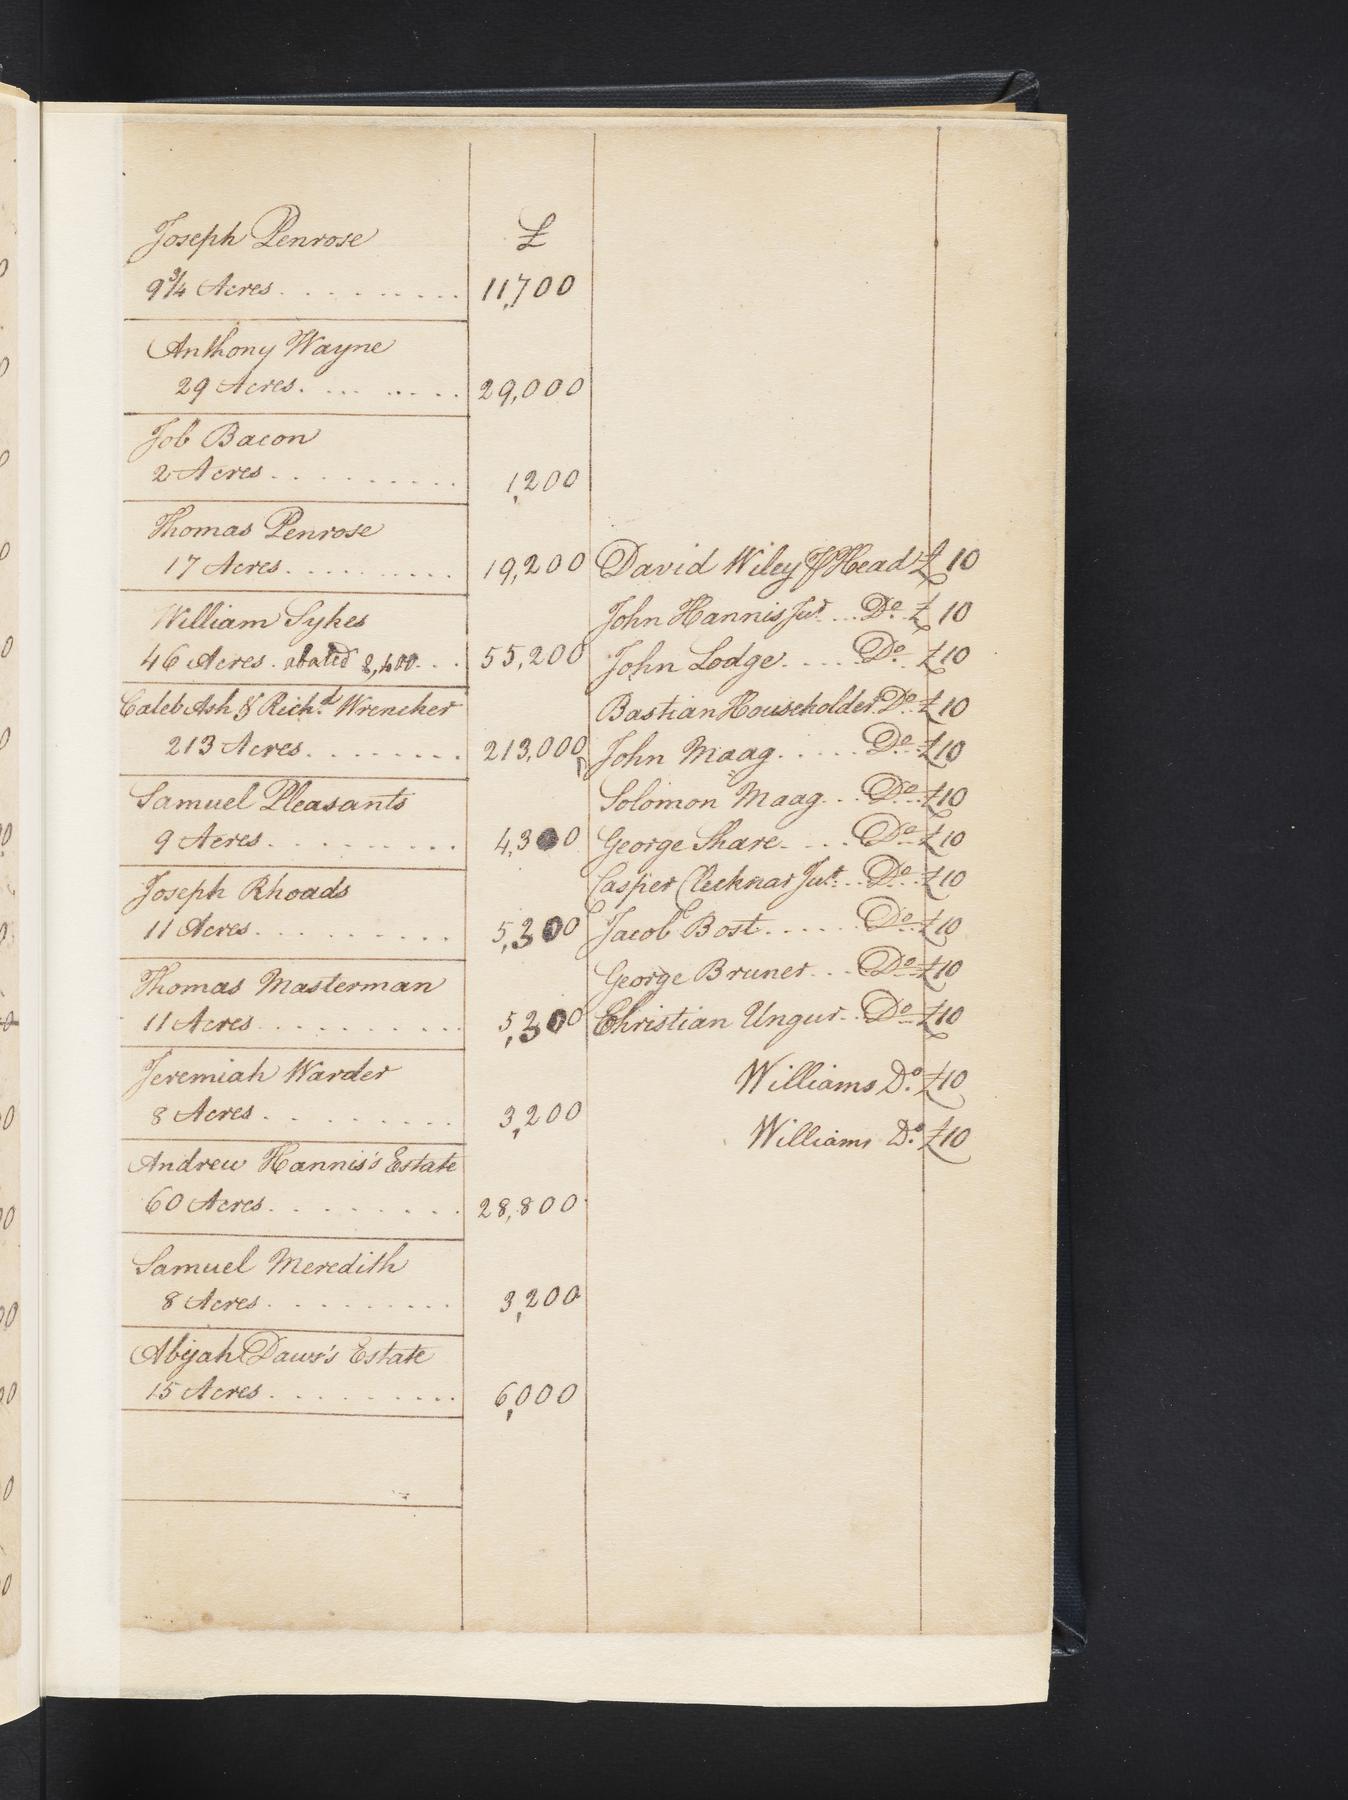 Joseph Penrose £
9¾ Acres . . . . . . . . . 11,700
Anthony Wayne
29 Acres . . . . . . . . 29,000
Job Bacon
2 Acres . . . . . . . . . 1,200
Thomas Penrose
17 Acres . . . . . . . . . 19,200 David Wiley Head £ 10
William Sykes John Hannis Junr. . . . Do. £ 10
46 Acres . abated 8,400 . . . 55,200 John Lodge . . . . Do. £10
Caleb Ash & Richd. Wrencher Bastian Householder Do. £10
213 Acres . . . . . . . . 213,000 John Maag . . . . . Do. £10
Samuel Pleasants Solomon Maag . . . Do. £10
9 Acres . . . . . . . . . 4,300 George Share . . . . Do. £10
Joseph Rhoads Casper Junr. . . Do. . £10
11 Acres . . . . . . . . . 5,300 Jacob Bost . . . . . . Do. £10
Thomas Masterman George Bruner . . . Do. £10
11 Acres . . . . . . . . . 5,300 Christian Ungur . . Do. £10
Jeremiah Warder Williams Do. £10
8 Acres . . . . . . . . 3,200 Williams Do. £10
Andrew Hannis's Estate
60 Acres . . . . . . . . . 28,800
Samuel Meredith
8 Acres . . . . . . . . . 3,200
Abijah Daws's Estate
15 Acres . . . . . . . . . 6,000